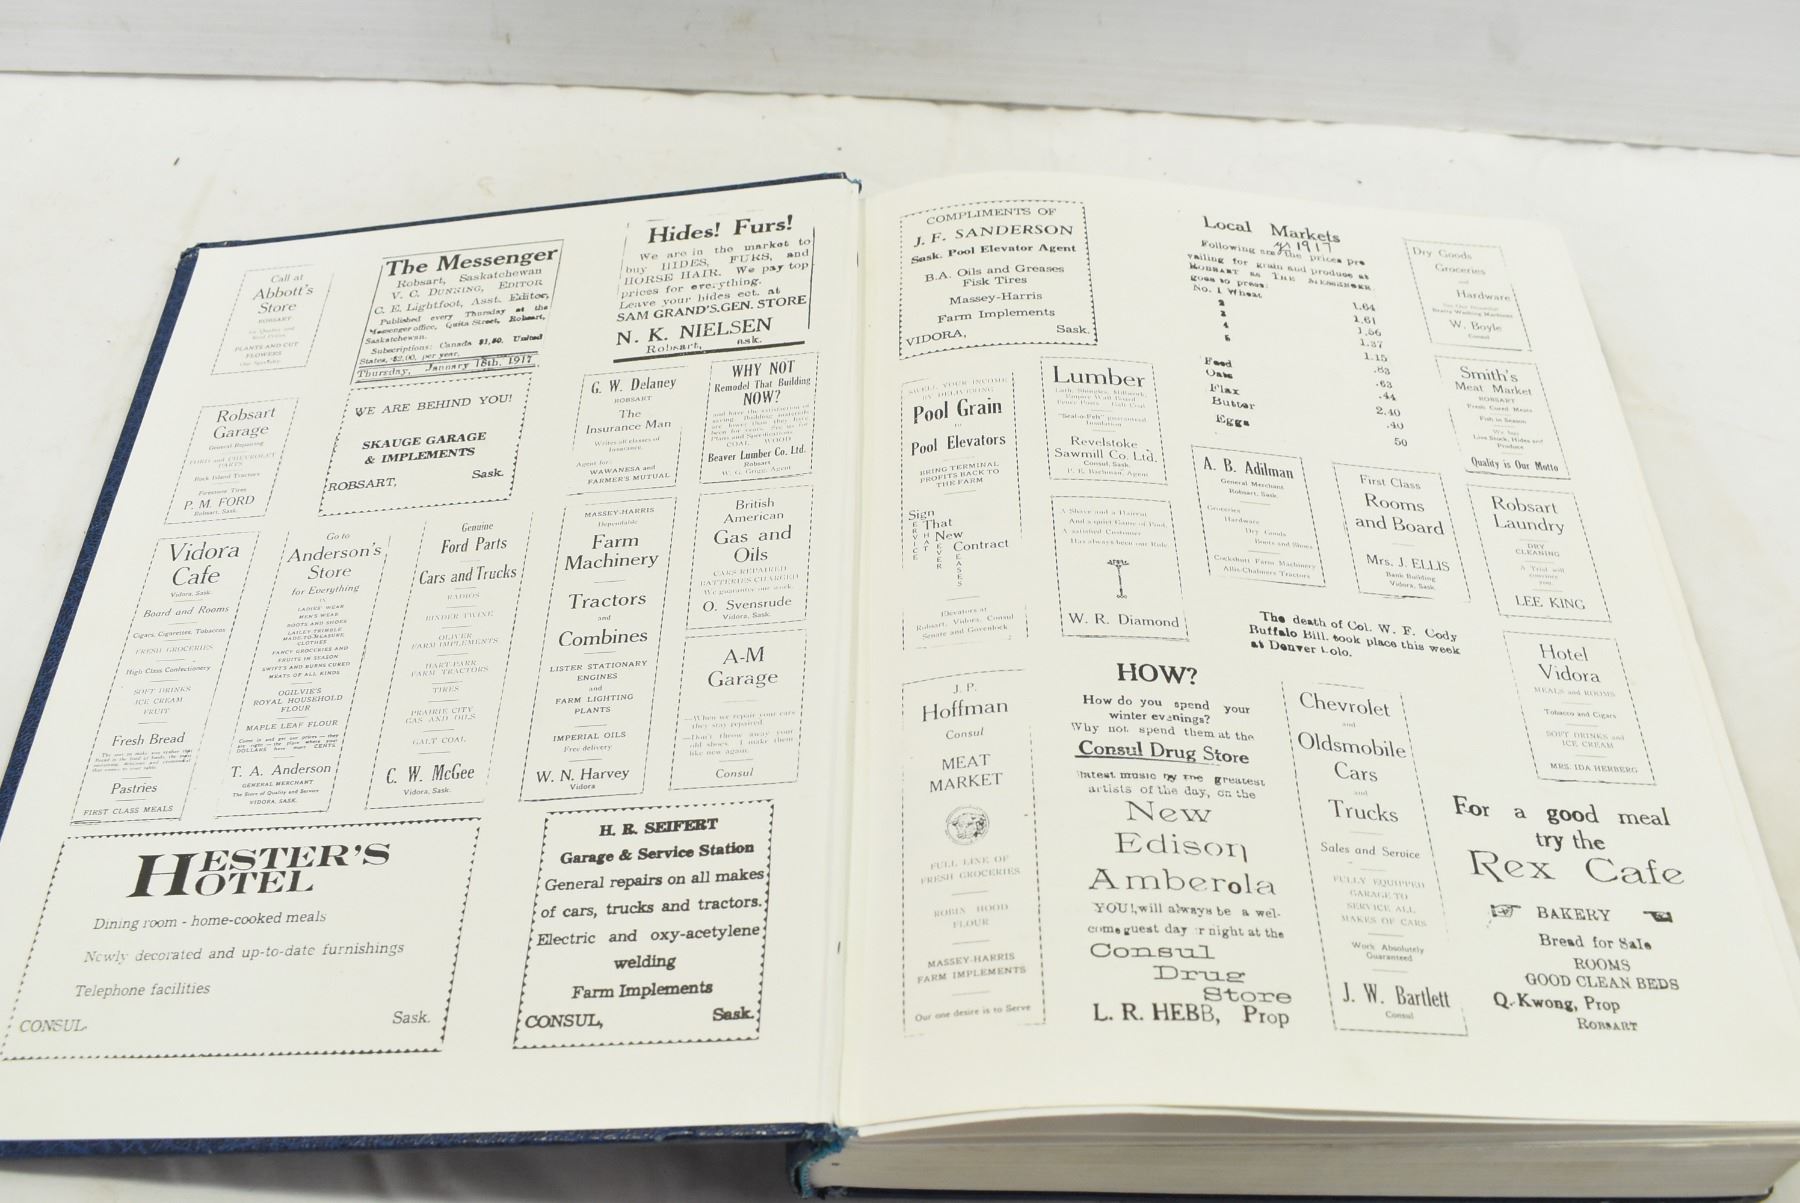 Call at
Abbott's
Store
ROBSART
PLANTS AND CUT
FLOWERS
Our Specialty
The Messenger
Robsart, Saskatchewan
V. C. DUNNING, EDITOR
C. E. Lightfoot, Asst. Editor,
Published every Thursday at the
Messenger office, Quita Street, Robsart,
Saskatchewan.
Subscriptions: Canada $1.50. United
States, $2.00, per year.
Thursday, January 18th, 1917.
Hides! Furs!
We are in the market to
buy HIDES, FURS, and
HORSE HAIR. We pay top
prices for everything.
Leave your hides ect. at
SAM GRAND'S.GEN. STORE
N. K. NIELSEN
Robsart, ask.
Robsart
Garage
General Repairing
FORD and CHEVROLET
PARTS
Rock Island Tractors
Firestone Tires
P. M. FORD
Robsart, Sask.
WE ARE BEHIND YOU!
SKAUGE GARAGE
& IMPLEMENTS
ROBSART, Sask.
G. W. Delaney
ROBSART
The
Insurance Man
Writes all classes of
Insurance.
Agent for:
WAWANESA and
FARMER'S MUTUAL
WHY NOT
Remodel That Building
NOW?
COAL WOOD
Beaver Lumber Co. Ltd.
Robsart
W. G. Grigg, Agent
Vidora
Cafe
Vidora, Sask.
Board and Rooms
Cigars, Cigarettes, Tobaccos
FRESH GROCERIES
High Class Confectionery
SOFT DRINKS
ICE CREAM
FRUIT
Fresh Bread
Pastries
FIRST CLASS MEALS
Go to
Anderson's
Store
for Everything
IN
LADIES' WEAR
MEN'S WEAR
BOOTS AND SHOES
LAILEY-TRIMBLE
MADE-TO-MEASURE
CLOTHES
FANCY GROCERIES AND
FRUITS IN SEASON
SWIFT'S AND BURNS CURED
MEATS OF ALL KINDS
OGILVIE'S
ROYAL HOUSEHOLD
FLOUR
MAPLE LEAF FLOUR
Come in and get our prices — they
are right — the place where your
DOLLARS have more CENTS
T. A. Anderson
GENERAL MERCHANT
The Store of Quality and Service
VIDORA, SASK.
Genuine
Ford Parts
Cars and Trucks
RADIOS
BINDER TWINE
OLIVER
FARM IMPLEMENTS
HART-PARR
FARM TRACTORS
TIRES
PRAIRIE CITY
GAS AND OILS
GALT COAL
C. W. McGee
Vidora, Sask.
MASSEY-HARRIS
Dependable
Farm
Machinery
Tractors
and
Combines
LISTER STATIONARY
ENGINES
and
FARM LIGHTING
PLANTS
IMPERIAL OILS
Free delivery
W. N. Harvey
Vidora
British
American
Gas and
Oils
CARS REPAIRED
BATTERIES CHARGED
We guarantee our work.
O. Svensrude
Vidora, Sask.
A-M
Garage
—When we repair your cars
they stay repaired.
—Don't throw away your
old shoes. I make them
like new again.
Consul
HESTER'S
HOTEL
Dining room - home-cooked meals
Newly decorated and up-to-date furnishings
Telephone facilities
CONSUL, Sask.
H. R. SEIFERT
Garage & Service Station
General repairs on all makes
of cars, trucks and tractors.
Electric and oxy-acetylene
welding
Farm Implements
CONSUL, Sask.
COMPLIMENTS OF
J. F. SANDERSON
Sask. Pool Elevator Agent
B.A. Oils and Greases
Fisk Tires
Massey-Harris
Farm Implements
VIDORA, Sask.
Local Markets
yr 1917
Following are the prices pre
vailing for grain and produce at
ROBSART as THE MESSENGER
goes to press:
No. 1 Wheat 1.64
2 1.61
3 1.56
4 1.37
5 1.15
Feed .83
Oats .63
Flax .44
Butter 2.40
Eggs .40
50
Dry Goods
Groceries
and
Hardware
Beatty Washing Machines
W. Boyle
Consul
SWELL YOUR INCOME
BY DELIVERING
Pool Grain
to
Pool Elevators
BRING TERMINAL
PROFITS BACK TO
THE FARM
Sign
That
New
Contract
Elevators at
Robsart, Vidora, Consul
Senate and Govenlock
Lumber
"Seal-o-Felt" guaranteed
Insulation
Revelstoke
Sawmill Co. Ltd.
Consul, Sask.
P. E. Bachman, Agent
Smith's
Meat Market
ROBSART
Fresh Cured Meats
Fish in Season
We buy
Live Stock, Hides and
Produce
Quality is Our Motto
A. B. Adilman
General Merchant
Robsart, Sask.
Groceries
Hardware
Dry Goods
Boots and Shoes
Cockshutt Farm Machinery
Allis-Chalmers Tractors
First Class
Rooms
and Board
Mrs. J. ELLIS
Bank Building
Vidora, Sask.
Robsart
Laundry
DRY
CLEANING
A Trial will
convince
you.
LEE KING
A Shave and a Haircut
And a quiet Game of Pool,
A satisfied Customer
Has always been our Rule
W. R. Diamond
The death of Col. W. F. Cody
Buffalo Bill. took place this week
at Denver Colo.
Hotel
Vidora
MEALS and ROOMS
Tobacco and Cigars
SOFT DRINKS and
ICE CREAM
MRS. IDA HERBERG
J. P.
Hoffman
Consul
MEAT
MARKET
FULL LINE OF
FRESH GROCERIES
ROBIN HOOD
FLOUR
MASSEY-HARRIS
FARM IMPLEMENTS
Our one desire is to Serve
HOW?
How do you spend your
winter evenings?
Why not spend them at the
Consul Drug Store
latest music by the greatest
artists of the day, on the
New
Edison
Amberola
YOU!,will always be a wel-
come guest day or night at the
Consul
Drug
Store
L. R. HEBB, Prop
Chevrolet
and
Oldsmobile
Cars
and
Trucks
Sales and Service
FULLY EQUIPPED
GARAGE TO
SERVICE ALL
MAKES OF CARS
Work Absolutely
Guaranteed
J. W. Bartlett
Consul
For a good meal
try the
Rex Cafe
BAKERY
Bread for Sale
ROOMS
GOOD CLEAN BEDS
Q. Kwong, Prop
ROBSART